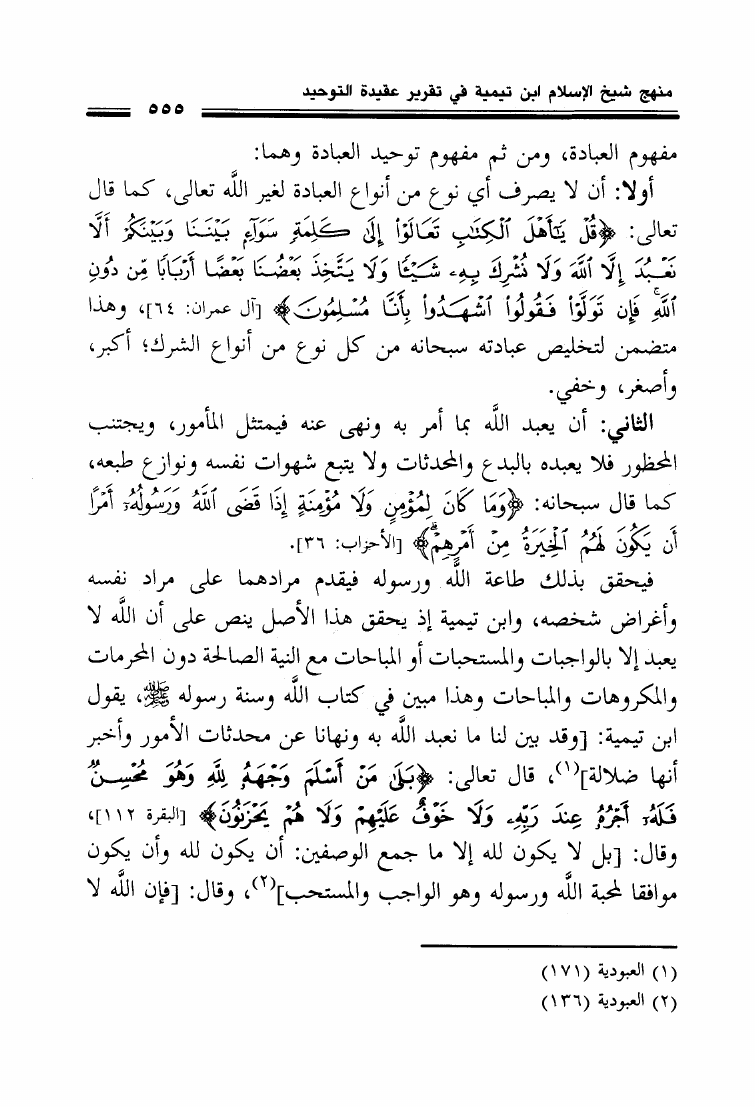 منهج شيخ الإسلام ابن تيمية في تقرير عقيدة التوحيد
٥٥٥
مفهوم العبادة، ومن ثم مفهوم توحيد العبادة وهما:
أولا: أن لا يصرف أي نوع من أنواع العبادة لغير اللَّه تعالى، كما قال
تعالى: ﴿قُلْ يَٰٓأَهْلَ ٱلْكِتَٰبِ تَعَالَوْا۟ إِلَىٰ كَلِمَةٍ سَوَآءٍۭ بَيْنَنَا وَبَيْنَكُمْ أَلَّا
نَعْبُدَ إِلَّا ٱللَّهَ وَلَا نُشْرِكَ بِهِۦ شَيْـًٔا وَلَا يَتَّخِذَ بَعْضُنَا بَعْضًا أَرْبَابًا مِّن دُونِ
ٱللَّهِ ۚ فَإِن تَوَلَّوْا۟ فَقُولُوا۟ ٱشْهَدُوا۟ بِأَنَّا مُسْلِمُونَ﴾ [آل عمران: ٦٤]، وهذا
متضمن لتخليص عبادته سبحانه من كل نوع من أنواع الشرك؛ أكبر،
وأصغر، وخفي.
الثاني: أن يعبد اللَّه بما أمر به ونهى عنه فيمتثل المأمور، ويجتنب
المحظور فلا يعبده بالبدع والمحدثات ولا يتبع شهوات نفسه ونوازع طبعه،
كما قال سبحانه: ﴿وَمَا كَانَ لِمُؤْمِنٍ وَلَا مُؤْمِنَةٍ إِذَا قَضَى ٱللَّهُ وَرَسُولُهُۥٓ أَمْرًا
أَن يَكُونَ لَهُمُ ٱلْخِيَرَةُ مِنْ أَمْرِهِمْ ۗ﴾ [الأحزاب: ٣٦].
فيحقق بذلك طاعة اللَّه ورسوله فيقدم مرادهما على مراد نفسه
وأغراض شخصه، وابن تيمية إذ يحقق هذا الأصل ينص على أن اللَّه لا
يعبد إلا بالواجبات والمستحبات أو المباحات مع النية الصالحة دون المحرمات
والمكروهات والمباحات وهذا مبين في كتاب اللَّه وسنة رسوله ﷺ، يقول
ابن تيمية: [وقد بين لنا ما نعبد اللَّه به ونهانا عن محدثات الأمور وأخبر
أنها ضلالة](١)، قال تعالى: ﴿بَلَىٰ مَنْ أَسْلَمَ وَجْهَهُۥ لِلَّهِ وَهُوَ مُحْسِنٌ
فَلَهُۥٓ أَجْرُهُۥ عِندَ رَبِّهِۦ وَلَا خَوْفٌ عَلَيْهِمْ وَلَا هُمْ يَحْزَنُونَ﴾ [البقرة ١١٢]،
وقال: [بل لا يكون لله إلا ما جمع الوصفين: أن يكون لله وأن يكون
موافقا لمحبة اللَّه ورسوله وهو الواجب والمستحب](٢)، وقال: [فإن اللَّه لا
(١) العبودية (١٧١)
(٢) العبودية (١٣٦)